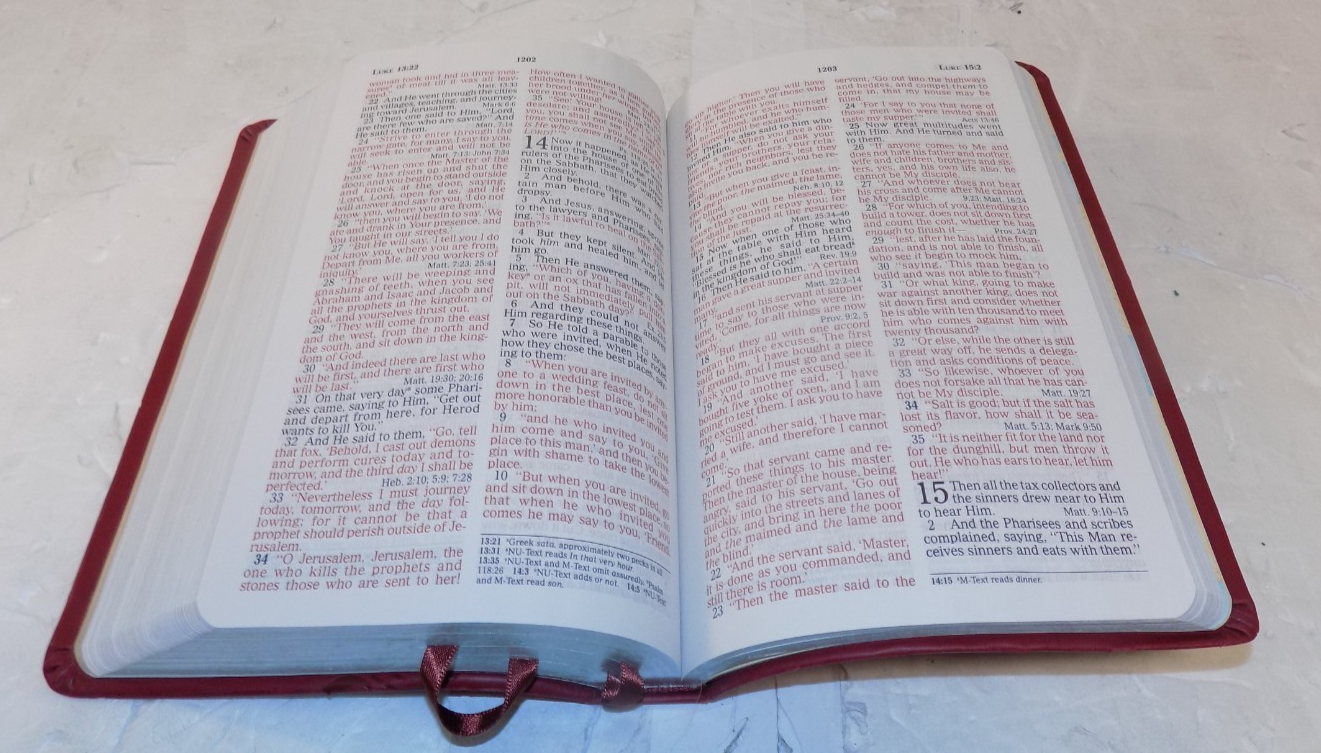 LUKE 13:22
1202
woman took and hid in three mea-
of meal till it was all leav-
Matt. 13:33
22 And He went through the cities
and villages, teaching, and journey-
ing toward Jerusalem. Mark 6:6
Then one said to Him, "Lord,
are there few who are saved?" And
He said to them, Matt. 7:14
24
gate, for many, I say to you,
will seek to enter and will not be
Matt. 7:13; John 7:34
25 "When once the Master of the
house has risen up and shut the
door, and you begin to stand outside
and knock at the door, saying,
Lord, Lord, open for us,' and He
will answer and say to you, 'I do not
know you, where you are from,'
26 will begin to say, 'We
ate and drank in Your presence, and
You taught in our streets.'
27 "But He will say, 'I tell you I do
not know you, where you are from.
Depart from Me, all you workers of
iniquity.' Matt. 7:23; 25:41
28 "There will be weeping and
gnashing of teeth, when you see
Abraham and Isaac and Jacob and
all the prophets in the kingdom of
God, and yourselves thrust out.
29 "They will come from the east
and the west, from the north and
the south, and sit down in the king-
dom of God.
30 "And indeed there are last who
will be first, and there are first who
will be last." Matt. 19:30; 20:16
31 On that very day* some Phari-
sees came, saying to Him, "Get out
and depart from here, for Herod
wants to kill You."
32 And He said to them, "Go, tell
that fox, 'Behold, I cast out demons
and perform cures today and to-
morrow, and the third day I shall be
perfected.' Heb. 2:10; 5:9; 7:28
33 "Nevertheless I must journey
today, tomorrow, and the day fol-
lowing; for it cannot be that a
prophet should perish outside of Je-
rusalem.
34 "O Jerusalem, Jerusalem, the
one who kills the prophets and
stones those who are sent to her!
How often I wanted to gather
children together,
her brood under her wings,
were not
35 "See! Your house
desolate; and assuredly,
you, you shall not see
comes when you say,
is He who comes in the name
14 Now it happened, as He
into the house of one of the
rulers of the Pharisees to eat
on the Sabbath, that they
Him closely.
2 And behold, there was a cer-
tain man before Him who had
dropsy.
3 And Jesus, answering, spoke
to the lawyers and Pharisees, say-
ing, "Is it lawful to heal on the Sab-
bath?"
4 But they kept silent. And He
took him and healed him, and let
him go.
5 Then He answered them, say-
ing, "Which of you, having a don-
key* or an ox that has fallen into a
pit, will not immediately pull him
out on the Sabbath day?"
6 And they could not answer
Him regarding these things.
7 So He told a parable to those
who were invited, when He noted
how they chose the best places, say-
ing to them:
8 "When you are invited by anyone
to a wedding feast, do not sit
down in the best place, lest one
more honorable than you be invited
by him;
9 "and he who invited you and
him come and say to you, 'Give
place to this man,' and then you be-
gin with shame to take the lowest
place.
10 "But when you are invited, go
and sit down in the lowest place, so
that when he who invited you
comes he may say to you, 'Friend,
13:21 *Greek sata, approximately two pecks in all
13:31 *NU-Text reads In that very hour.
13:35 *NU-Text and M-Text omit assuredly. *Psalm
118:26 14:3 *NU-Text adds or not. 14:5 *NU-Text
and M-Text read son.
1203
LUKE 15:2
higher.' Then you will have
presence of those who
with you.
exalts himself
he who hum-
12 Then He also said to him who
invited Him, "When you give a din-
do not ask your
your brothers, your rela-
neighbors, lest they
invite you back, and you be re-
"But when you give a feast, in-
the maimed, the lame,
Neh. 8:10, 12
"And you will be blessed, be-
cannot repay you; for
shall be repaid at the resurrec-
Matt. 25:34–40
15 Now when one of those who
at the table with Him heard
these things, he said to Him,
"Blessed is he who shall eat bread*
in the kingdom of God!" Rev. 19:9
Then He said to him, "A certain
man gave a great supper and invited
Matt. 22:2–14
17 "and sent his servant at supper
time to say to those who were in-
vited, 'Come, for all things are now
Prov. 9:2, 5
18 "But they all with one accord
began to make excuses. The first
said to him, 'I have bought a piece
of ground, and I must go and see it.
I ask you to have me excused.'
19 "And another said, 'I have
bought five yoke of oxen, and I am
going to test them. I ask you to have
me excused.'
20 "Still another said, 'I have mar-
ried a wife, and therefore I cannot
21 "So that servant came and re-
ported these things to his master.
Then the master of the house, being
angry, said to his servant, 'Go out
quickly into the streets and lanes of
the city, and bring in here the poor
and the maimed and the lame and
the blind.'
22 "And the servant said, 'Master,
it is done as you commanded, and
still there is room.'
23 "Then the master said to the
servant, 'Go out into the highways
and hedges, and compel them to
come in, that my house may be
filled.
24 'For I say to you that none of
those men who were invited shall
taste my supper.' " Acts 13:46
25 Now great multitudes went
with Him. And He turned and said
to them,
26 "If anyone comes to Me and
does not hate his father and mother,
wife and children, brothers and sis-
ters, yes, and his own life also, he
cannot be My disciple.
27 "And whoever does not bear
his cross and come after Me cannot
be My disciple. 9:23; Matt. 16:24
28 "For which of you, intending to
build a tower, does not sit down first
and count the cost, whether he has
enough to finish it— Prov. 24:27
29 "lest, after he has laid the foun-
dation, and is not able to finish, all
who see it begin to mock him,
30 "saying, 'This man began to
build and was not able to finish.'
31 "Or what king, going to make
war against another king, does not
sit down first and consider whether
he is able with ten thousand to meet
him who comes against him with
twenty thousand?
32 "Or else, while the other is still
a great way off, he sends a delega-
tion and asks conditions of peace.
33 "So likewise, whoever of you
does not forsake all that he has can-
not be My disciple. Matt. 19:27
34 "Salt is good; but if the salt has
lost its flavor, how shall it be sea-
soned? Matt. 5:13; Mark 9:50
35 "It is neither fit for the land nor
for the dunghill, but men throw it
out. He who has ears to hear, let him
hear!"
15 Then all the tax collectors and
the sinners drew near to Him
to hear Him. Matt. 9:10–15
2 And the Pharisees and scribes
complained, saying, "This Man re-
ceives sinners and eats with them."
14:15 *M-Text reads dinner.